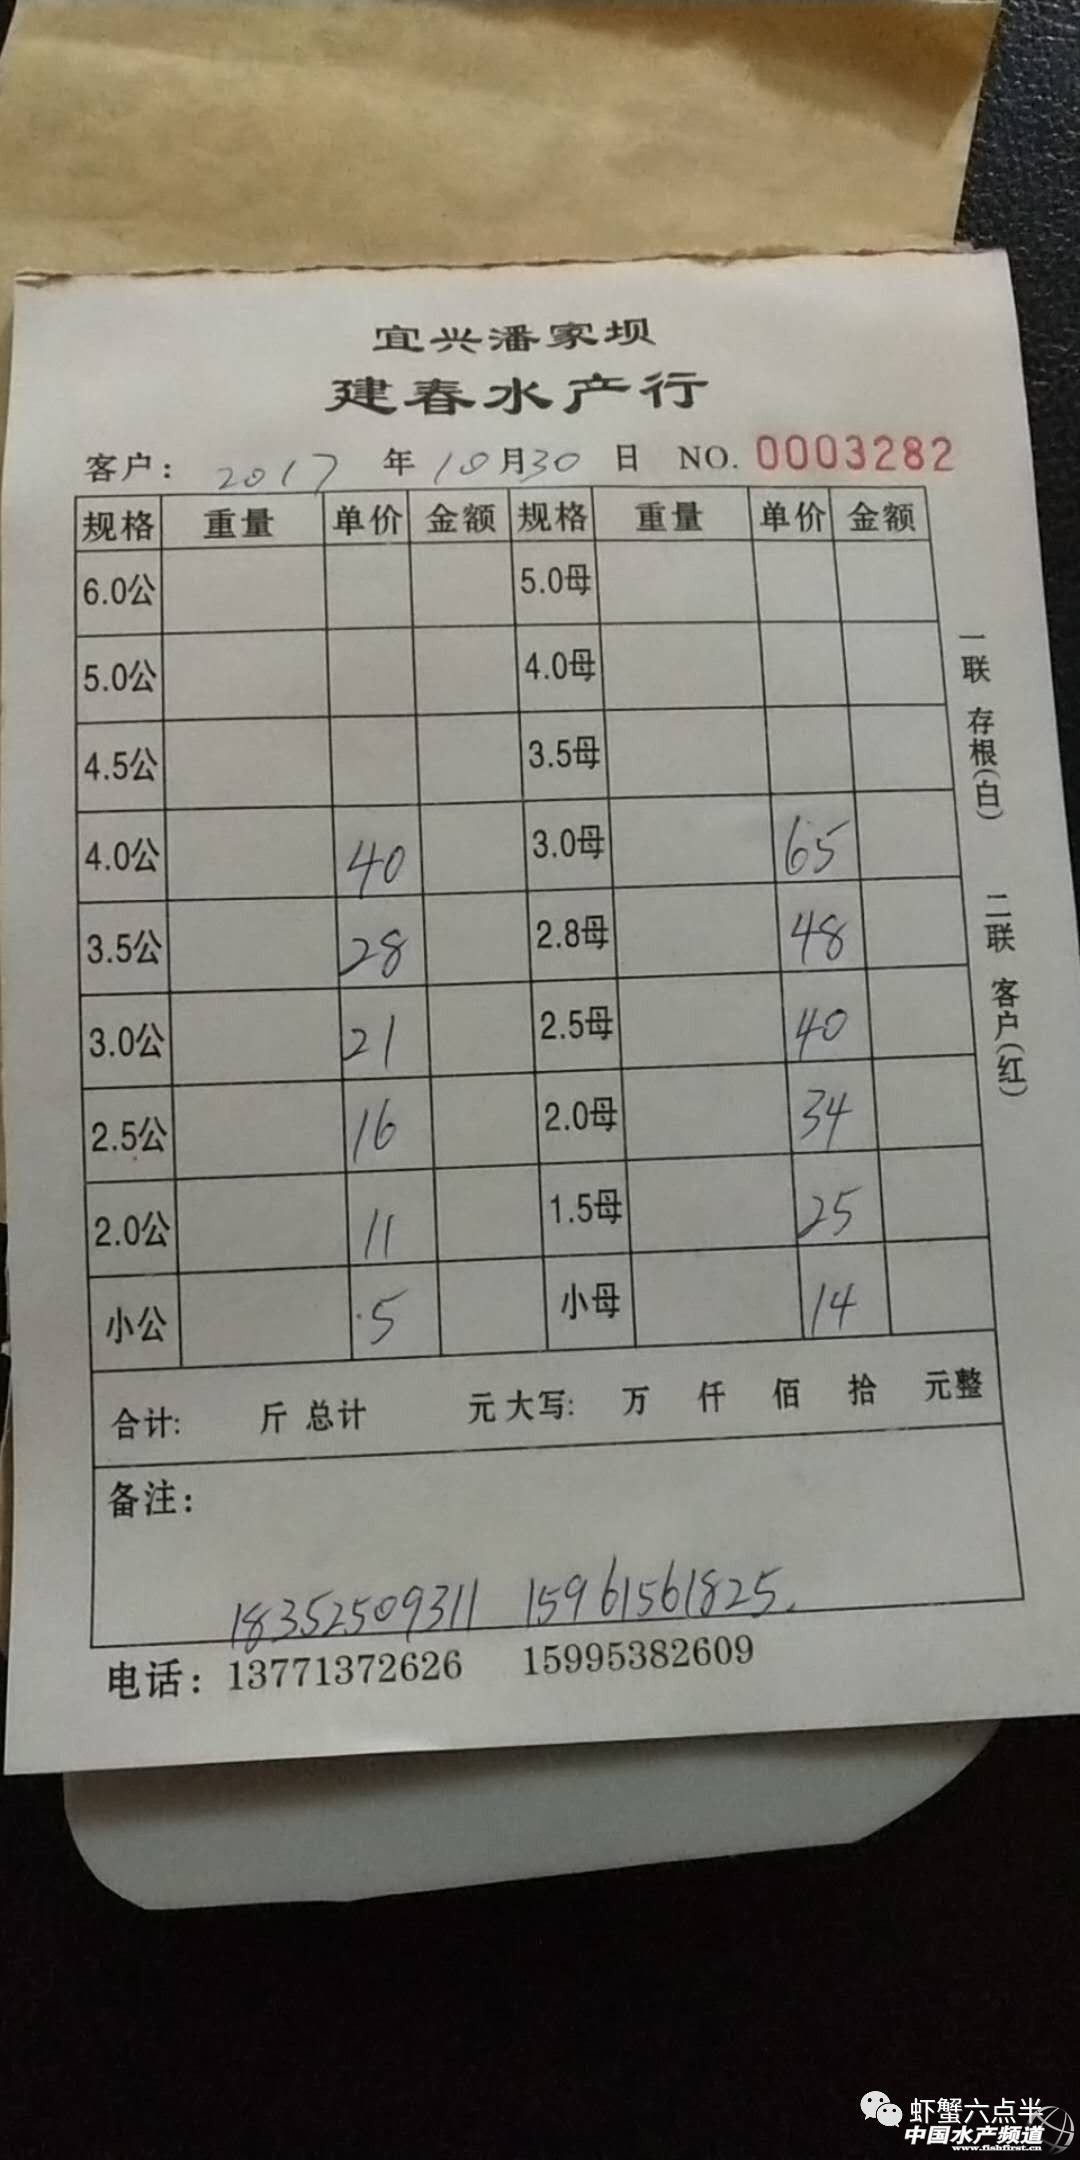 宜兴潘家坝
建春水产行
客户: 2017 年 10 月 30 日 NO. 0003282
规格 重量 单价 金额 规格 重量 单价 金额
6.0公 5.0母
5.0公 4.0母
4.5公 3.5母
4.0公 40 3.0母 65
3.5公 28 2.8母 48
3.0公 21 2.5母 40
2.5公 16 2.0母 34
2.0公 11 1.5母 25
小公 5 小母 14
合计: 斤 总计 元 大写: 万 仟 佰 拾 元整
备注:
18352509311 15961561825.
电话: 13771372626 15995382609
一联 存根(白) 二联 客户(红)
虾蟹六点半
中国水产频道
www.fishfirst.cn